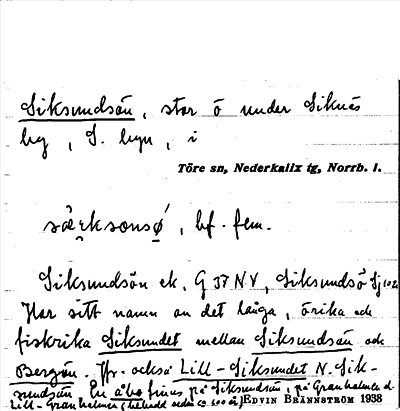 Siksundsön, stor ö under Siknäs
by, S. byn, i
Töre sn, Nederkalix tg, Norrb. l.
bf. fem.
Siksundsön ek. G 37 NV, Siksundsö Sj 102
Har sitt namn av det långa, örika och
fiskrika Siksundet mellan Siksundsön och
Bergön. Jfr. också Lill-Siksundet N. Sik-
sundsön En åbo finns på Siksundsön, på Granholmen o.
Lill-Granholmen (bebodd sedan ca. 100 år) EDVIN BRÄNNSTRÖM 1938